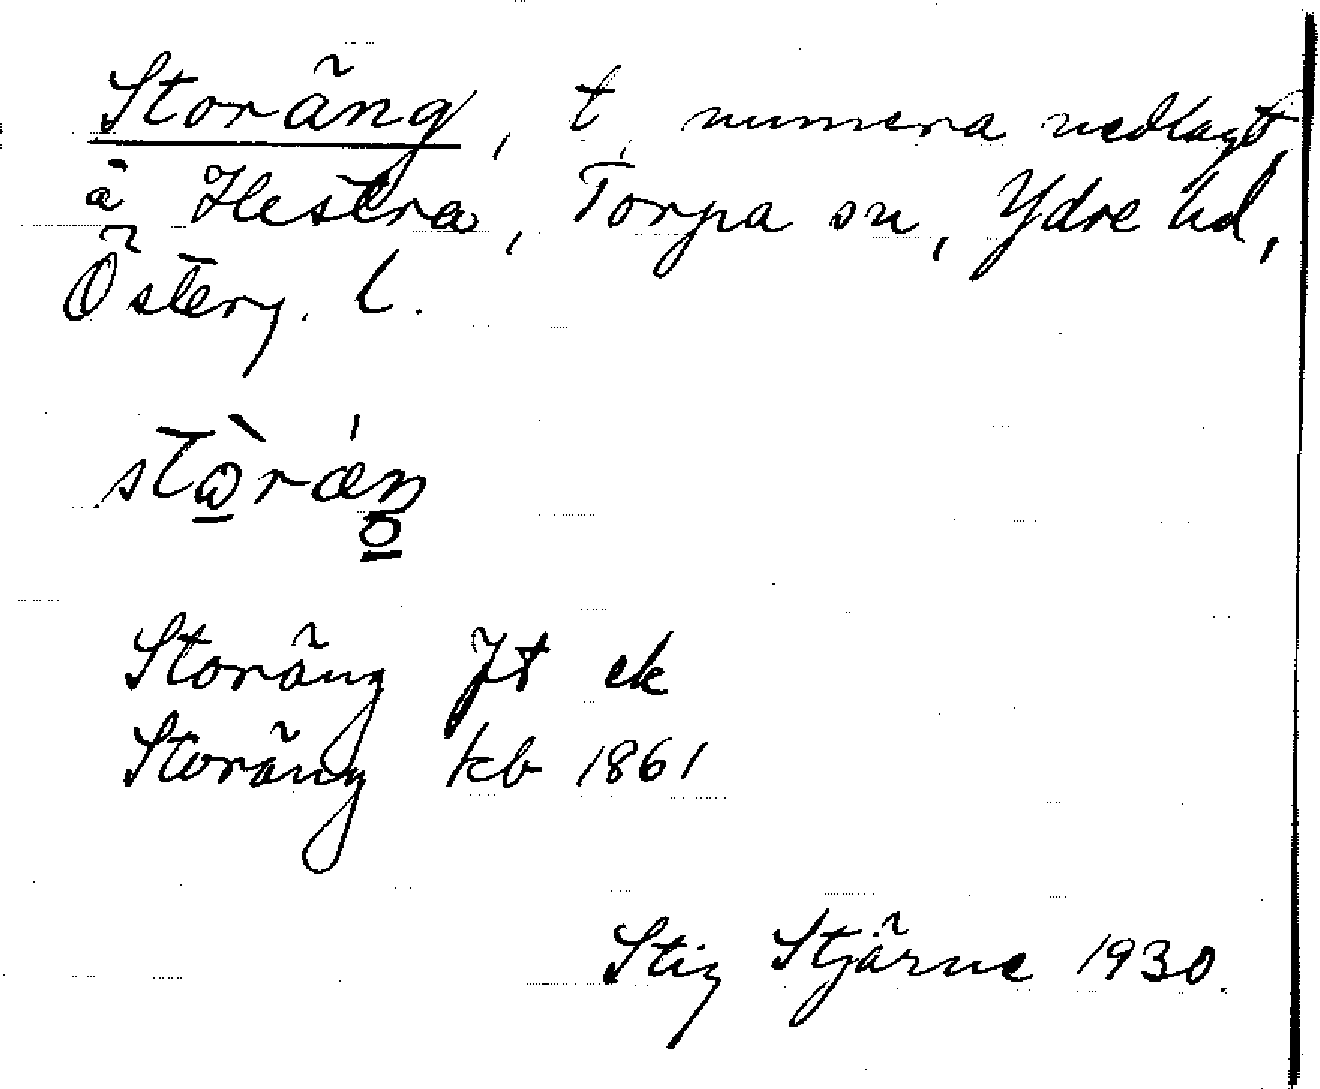 Storäng, t, numera nedlagt,
å Hestra, Torpa sn, Ydre hd,
Österg. l.
Storäng Jt ek
Storäng kb 1861
Stig Stjärne 1930.